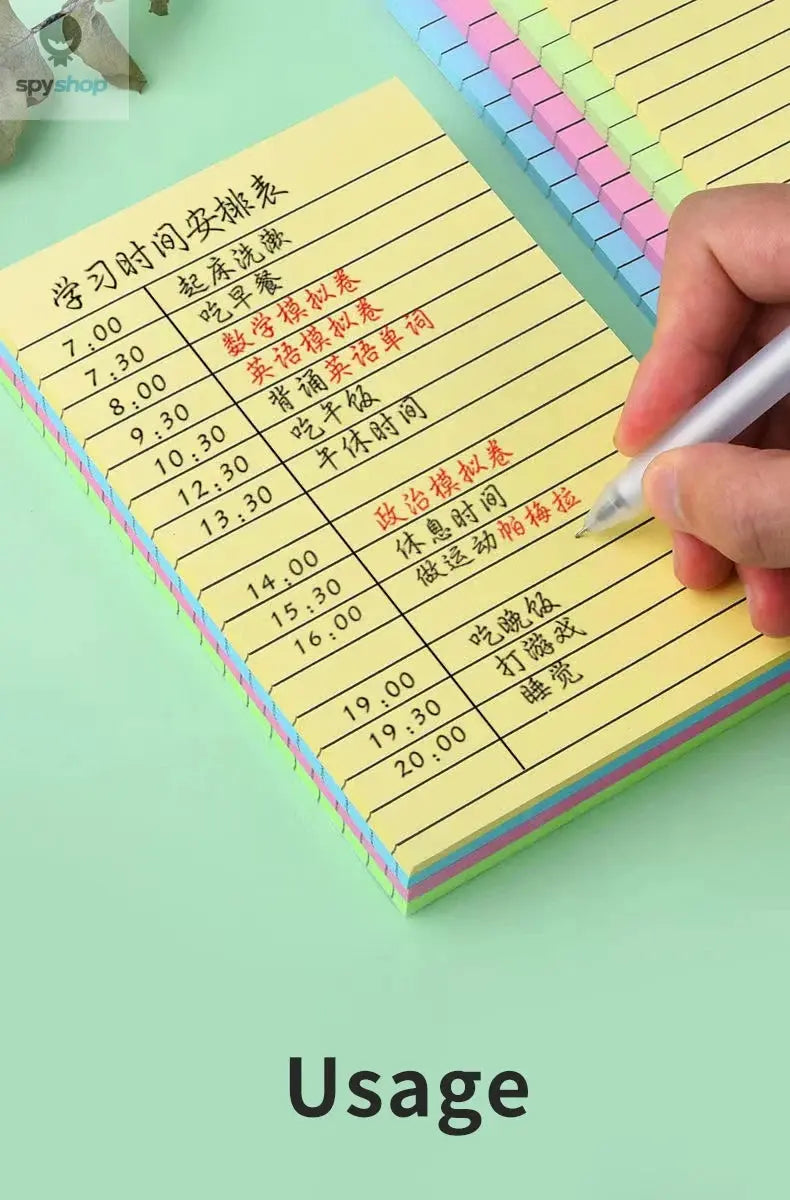 spyshop
学习时间安排表
7:00 起床洗漱
7:30 吃早餐
8:00 数学模拟卷
9:30 英语模拟卷
10:30 背诵英语单词
12:30 吃午饭
13:30 午休时间
14:00 政治模拟卷
15:30 休息时间
16:00 做运动帕梅拉
19:00 吃晚饭
19:30 打游戏
20:00 睡觉
Usage